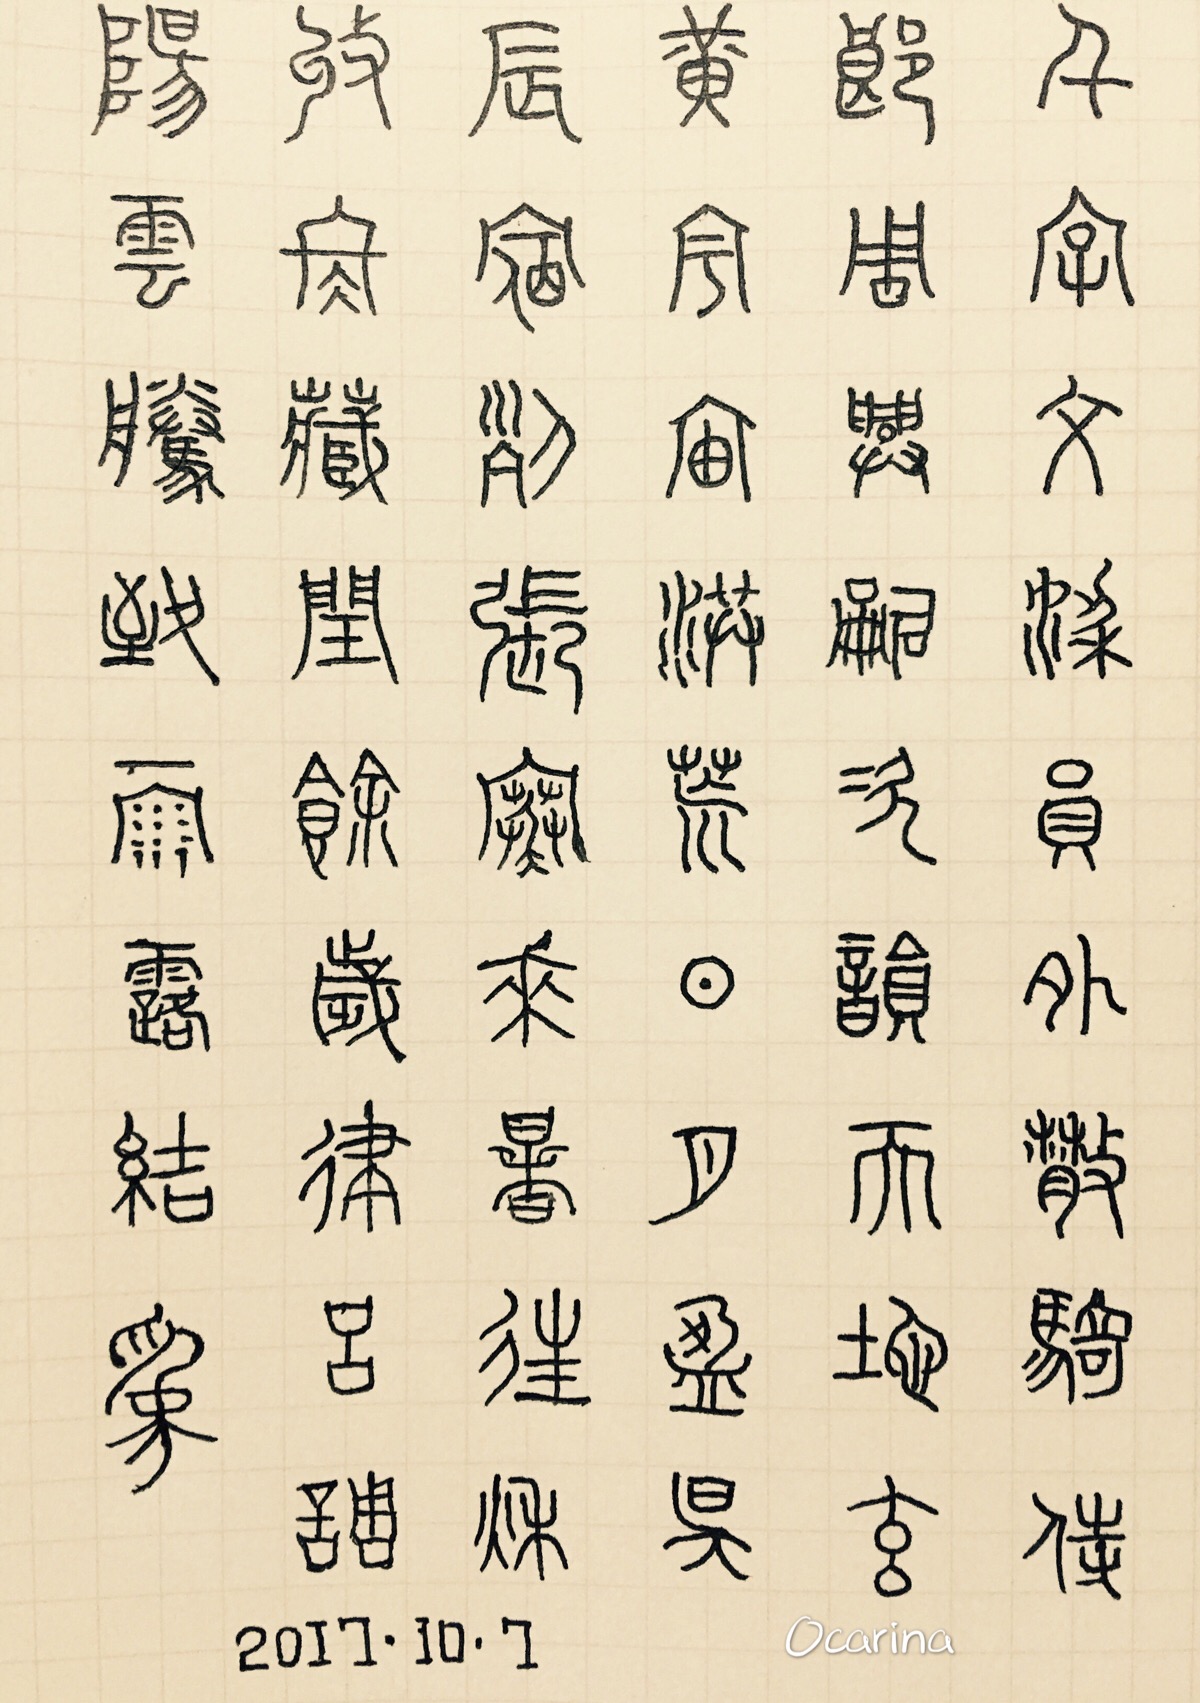 千字文梁員外散騎侍
郎周興嗣次韻天地玄
黃宇宙洪荒日月盈昃
辰宿列張寒來暑往秋
收冬藏閏餘歲律呂調
陽雲騰致雨露結為
2017.10.7
Ocarina